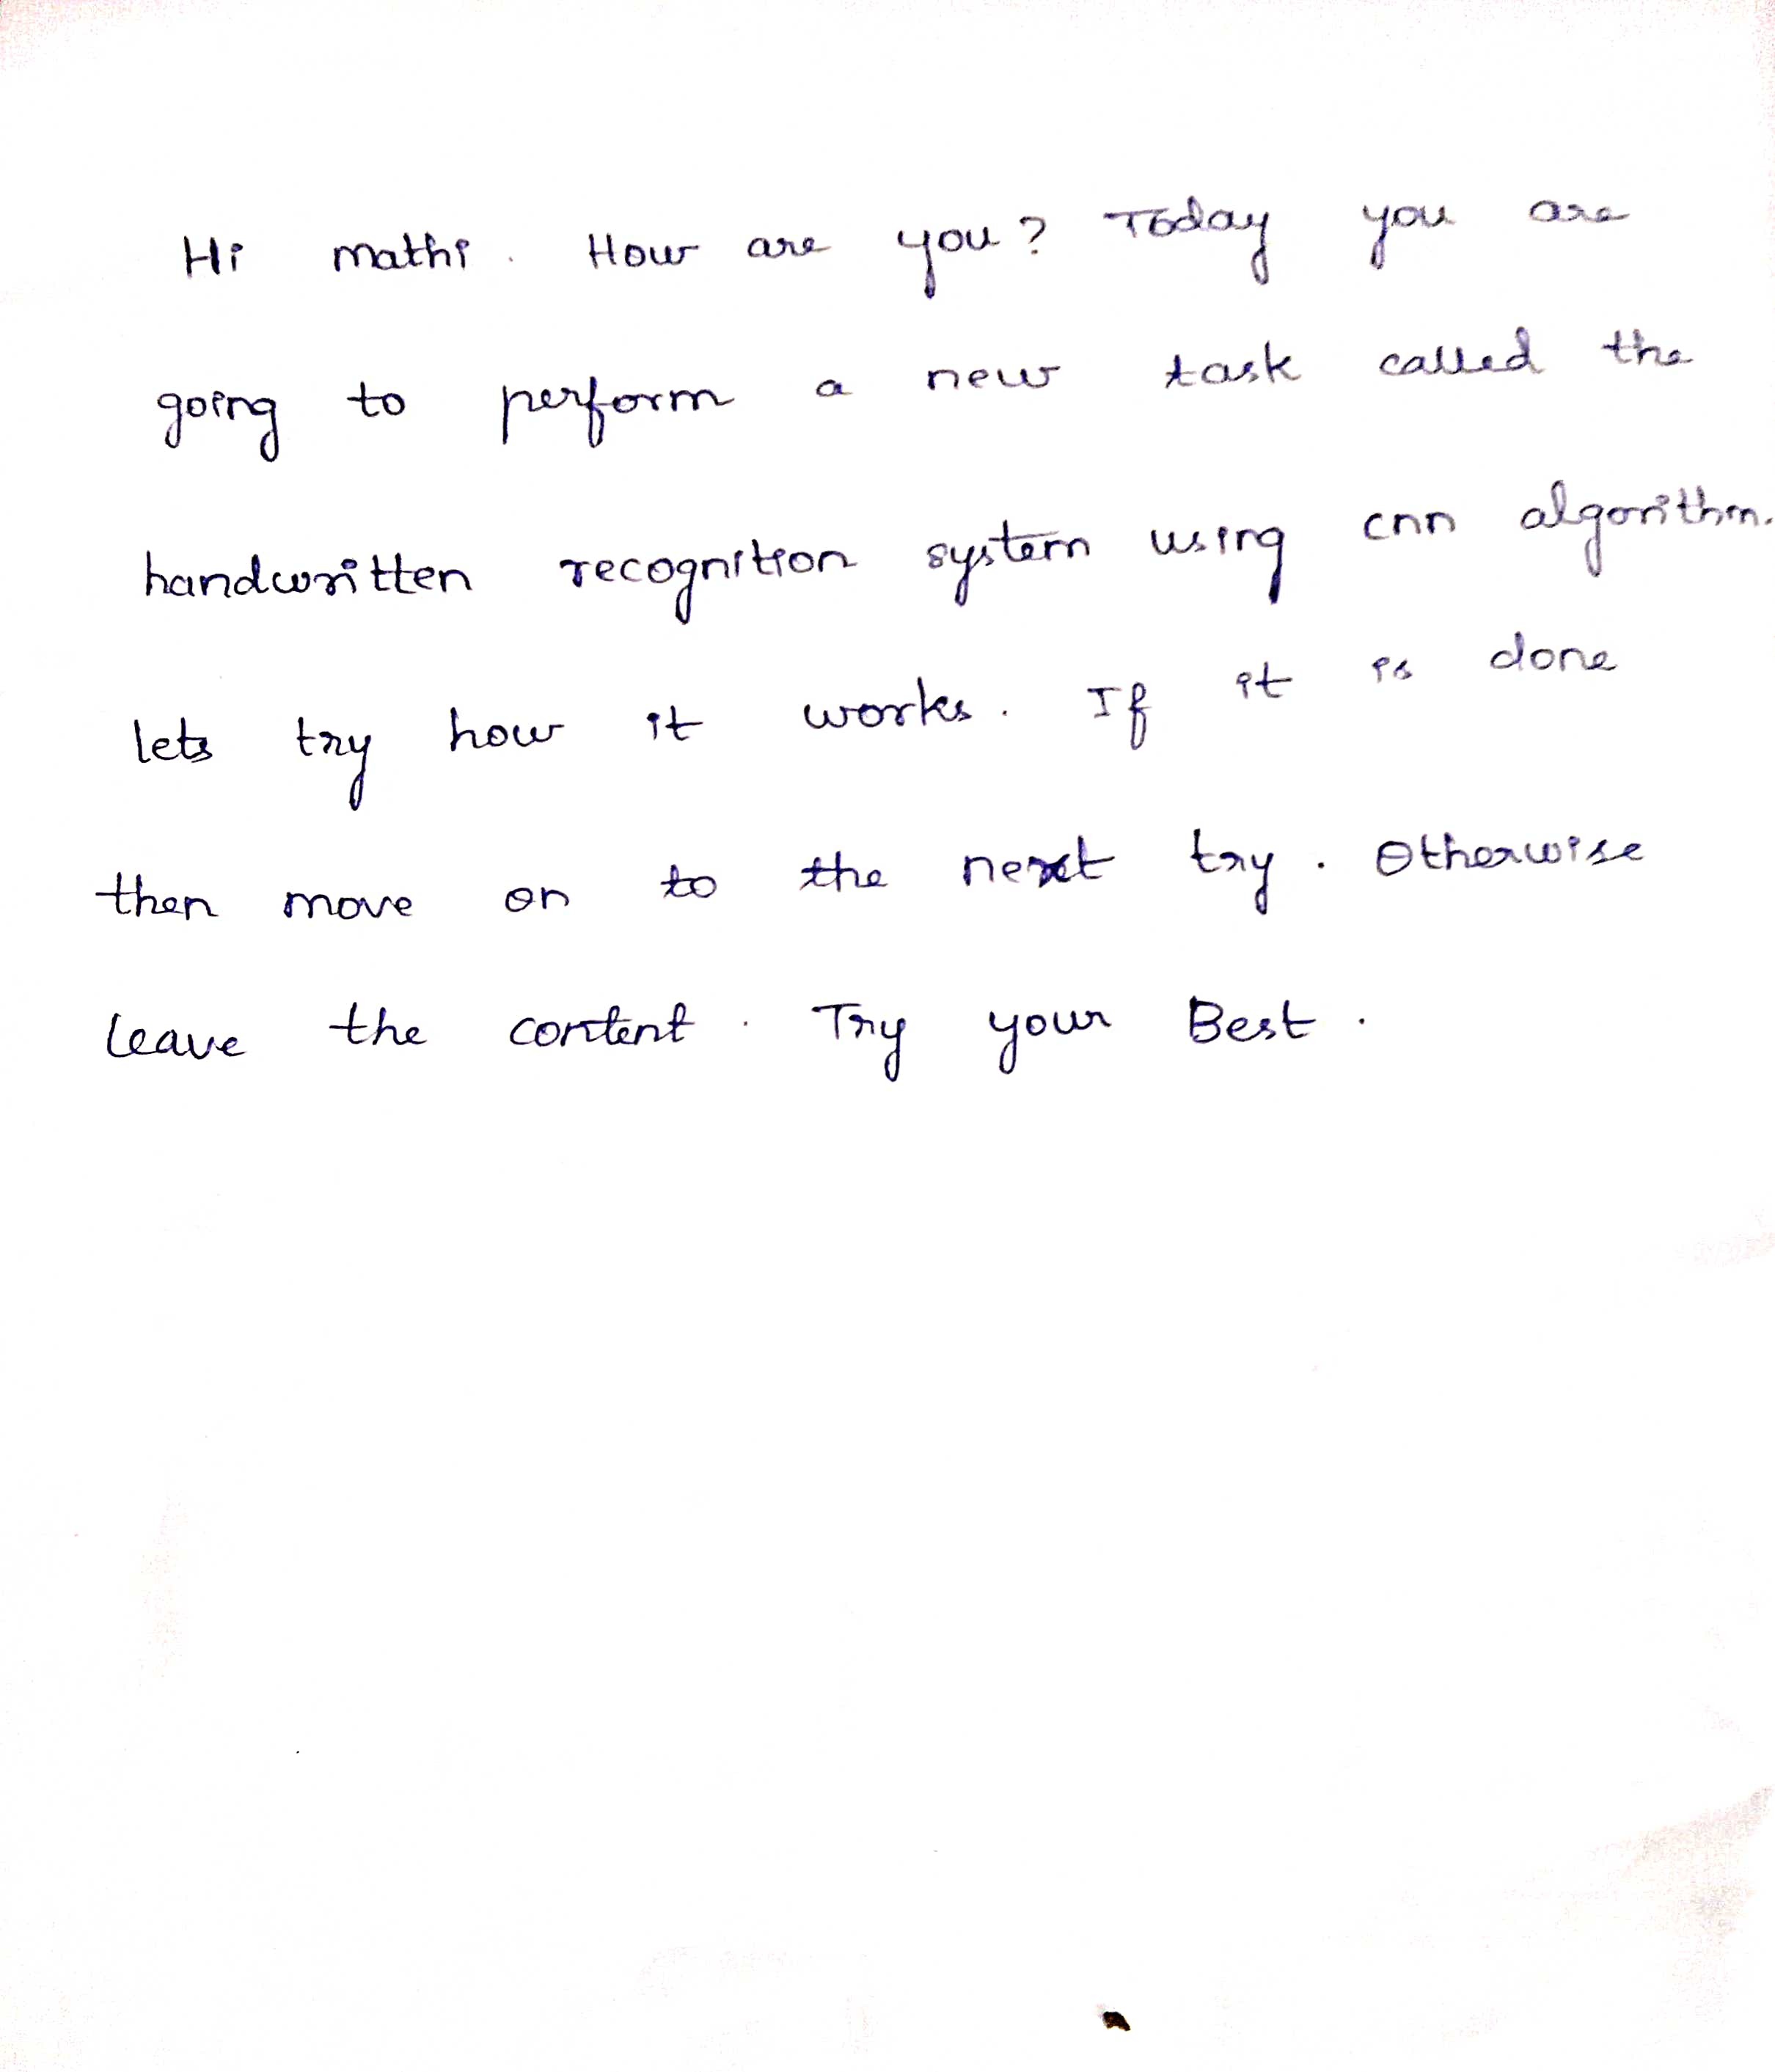 Hi mathi. How are you? Today you are
going to perform a new task called the
handwritten recognition system using cnn algorithm.
lets try how it works. If it is done
then move on to the next try. Otherwise
leave the content. Try your Best.